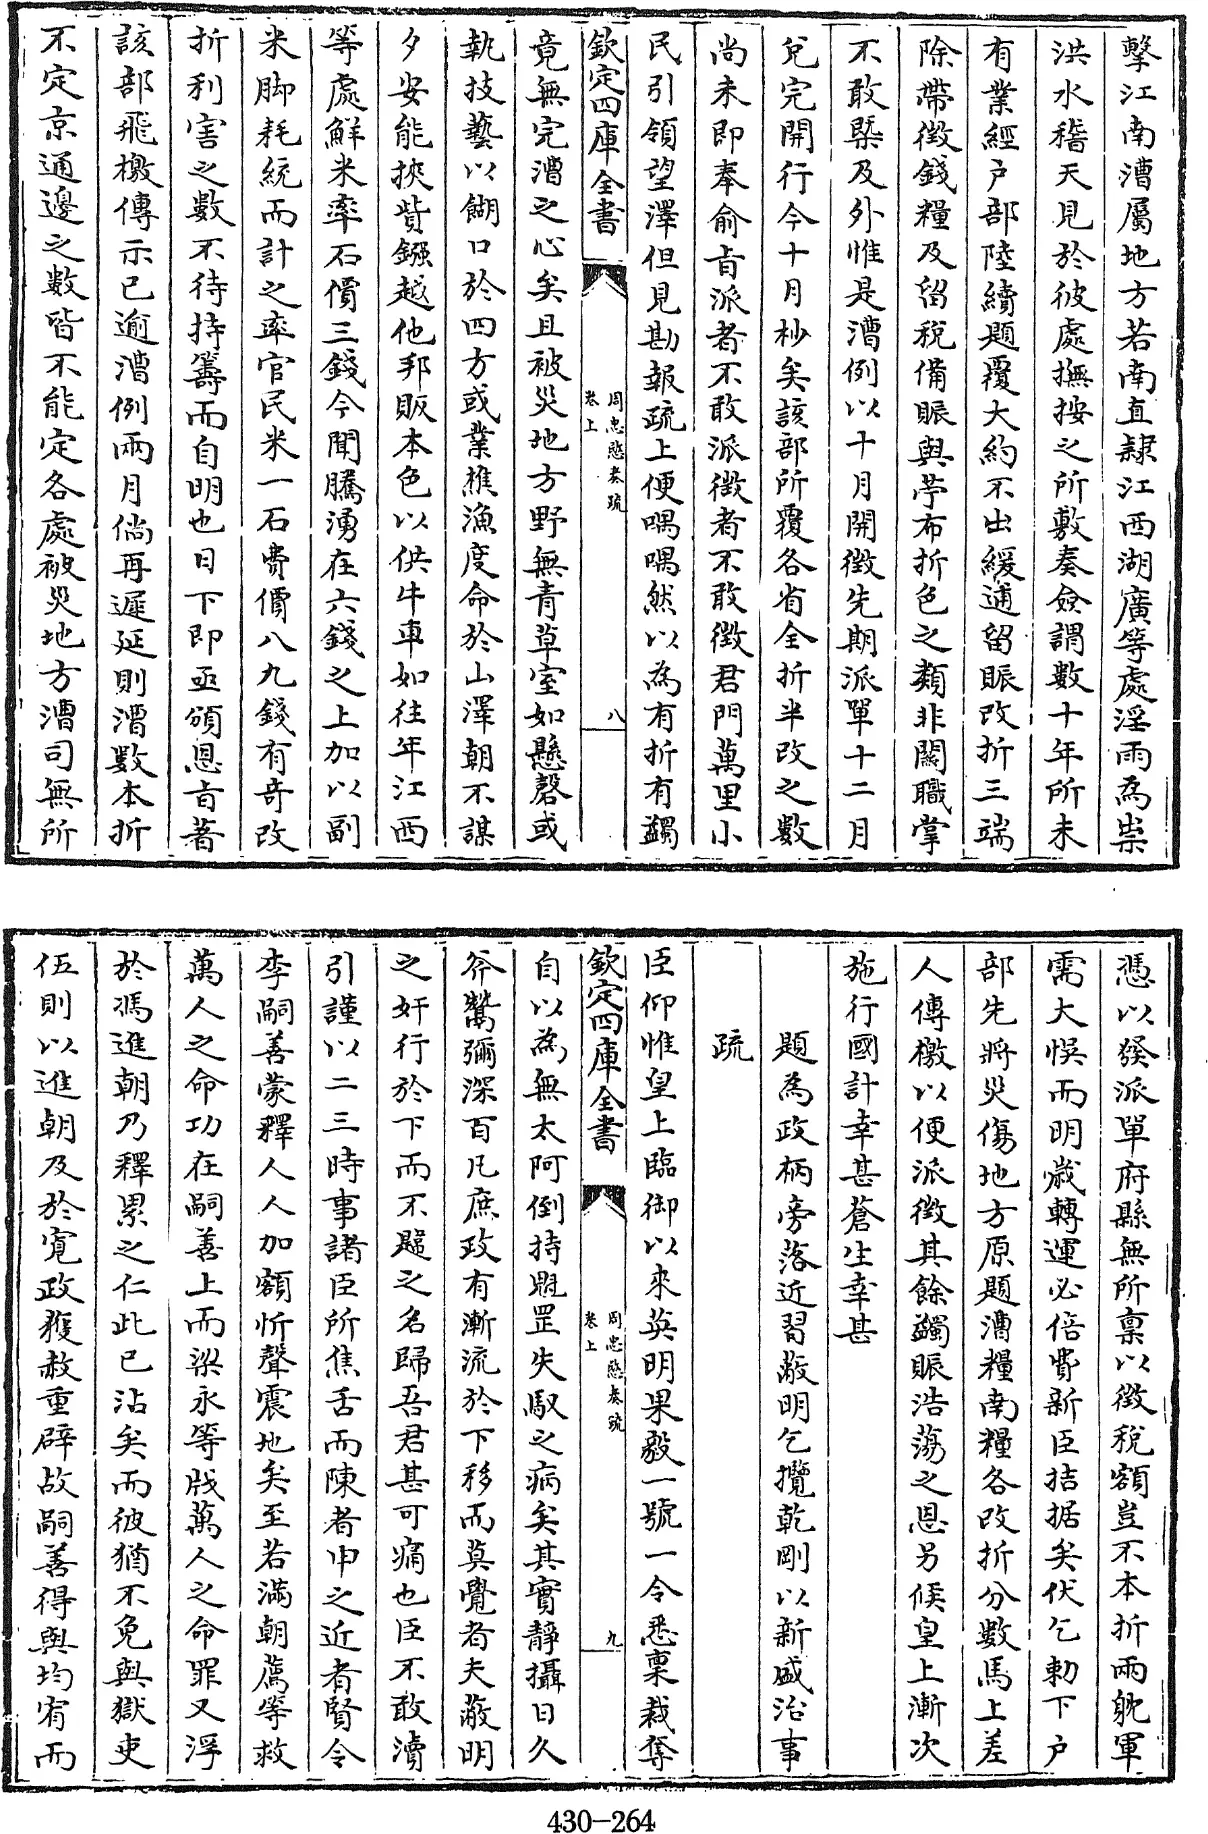 擊江南漕屬地方若南直隸江西湖廣等處淫雨為祟
洪水稽天見於彼處撫按之所敷奏僉謂數十年所未
有業經户部陸續題覆大約不出緩逋留賑改折三端
除帶徴錢糧及留稅備賑與夢布折色之類非闗職掌
不敢槩及外惟是漕例以十月開徴先期派單十二月
兌完開行今十月杪矣該部所覆各省全折半改之數
尚未即奉俞旨派者不敢派徴者不敢徴君門萬里小
民引領望澤但見勘報疏上便喁喁然以為有折有蠲
欽定四庫全書
周忠愍奏疏
卷上
八
竟無完漕之心矣且被災地方野無青草室如懸磬或
執技藝以餬口於四方或業樵漁度命於山澤朝不謀
夕安能挾貲鏹越他邦販本色以供牛車如往年江西
等處鮮米率石價三錢今聞騰湧在六錢之上加以副
米脚耗統而計之率官民米一石費價八九錢有奇改
折利害之數不待持籌而自明也日下即亟頒恩旨著
該部飛檄傳示已逾漕例兩月倘再遲延則漕數本折
不定京通邊之數皆不能定各處被災地方漕司無所
憑以發派單府縣無所稟以徴稅額豈不本折兩躭軍
需大悞而明嵗轉運必倍費新臣拮据矣伏乞勅下户
部先將災傷地方原題漕糧南糧各改折分數馬上差
人傳檄以便派徴其餘蠲賑浩蕩之恩另候皇上漸次
施行國計幸甚蒼生幸甚
題為政柄旁落近習蔽明乞攬乾剛以新盛治事
疏
臣仰惟皇上臨御以來英明果毅一號一令悉稟裁奪
欽定四庫全書
周忠愍奏疏
卷上
九
自以為無太阿倒持䚡罡失馭之病矣其實靜攝日久
斧鷟彌深百凡庶政有漸流於下移而莫覺者夫蔽明
之奸行於下而不韙之名歸吾君甚可痛也臣不敢瀆
引謹以二三時事諸臣所焦舌而陳者申之近者賢令
李嗣善蒙釋人人加額忻聲震地矣至若滿朝薦等救
萬人之命功在嗣善上而梁永等戕萬人之命罪又浮
於馮進朝乃釋累之仁此已沾矣而彼猶不免與獄吏
伍則以進朝及於寛政獲赦重辟故嗣善得與均宥而
430-264